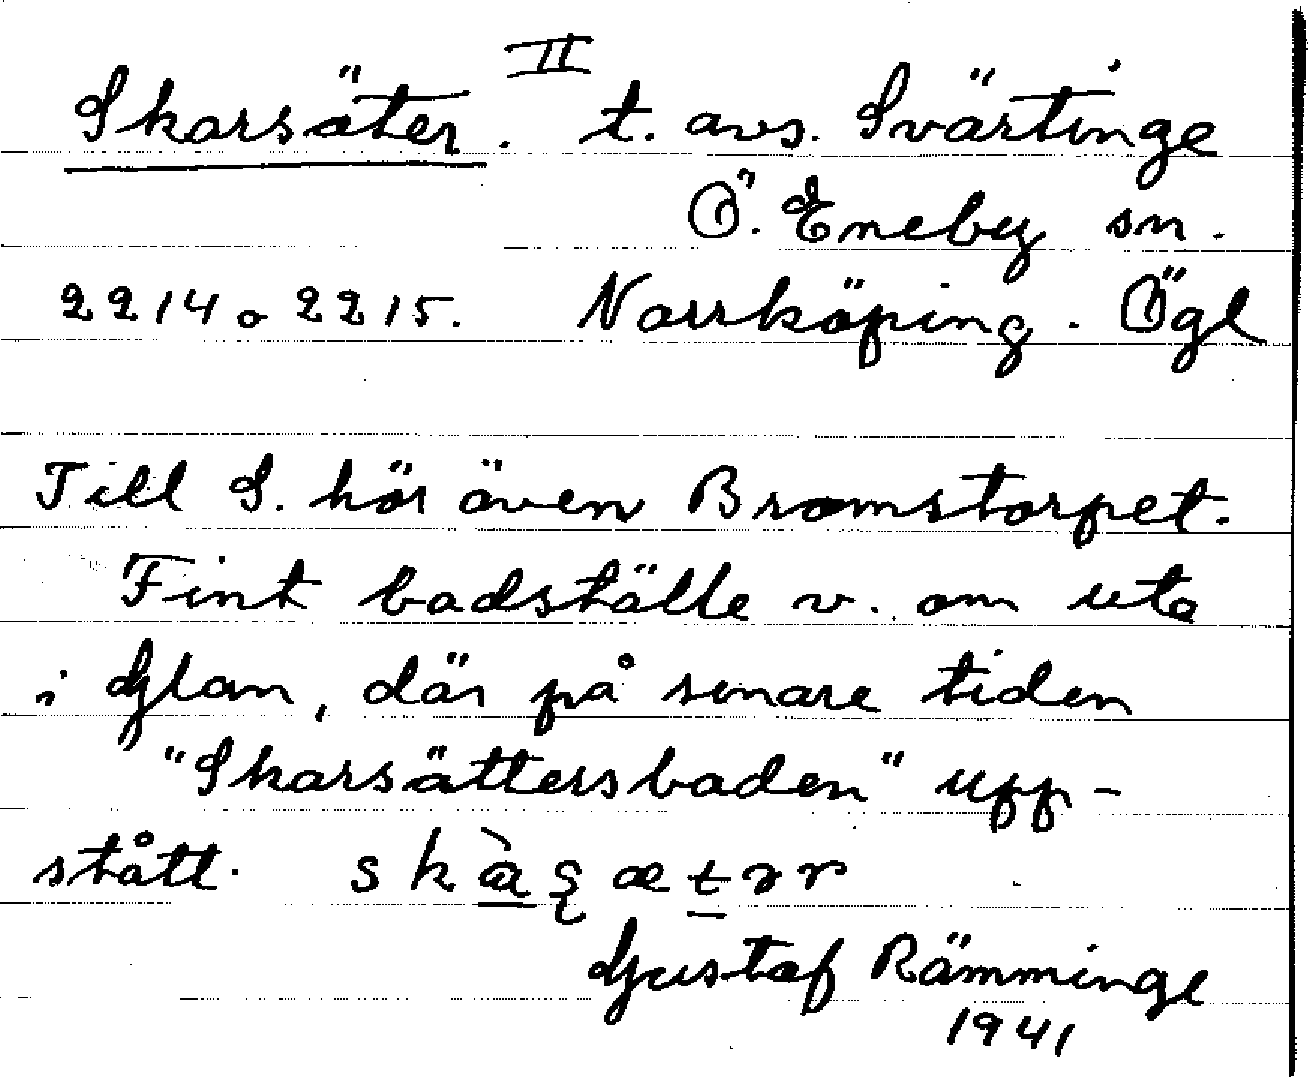 II
Skarsäter. t. avs. Svärtinge
Ö. Eneby sn.
2214 o 2215. Norrköping. Ögl
Till S. hör även Bromstorpet.
Fint badställe v. om ute
i Glan, där på senare tiden
"Skarsättersbaden" upp-
stått.
Gustaf Rämminge
1941